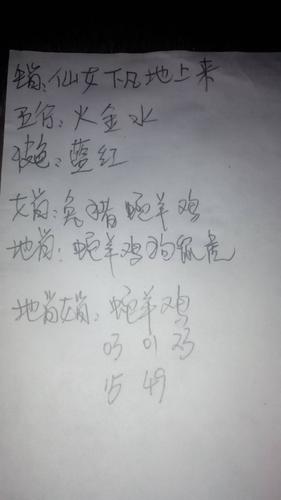 生肖:仙女下凡地上来
五行:火金水
波色:蓝红
女肖:兔猪蛇羊鸡
地肖:蛇羊鸡狗鼠虎
地肖女肖:蛇羊鸡
03 01 23
15 49